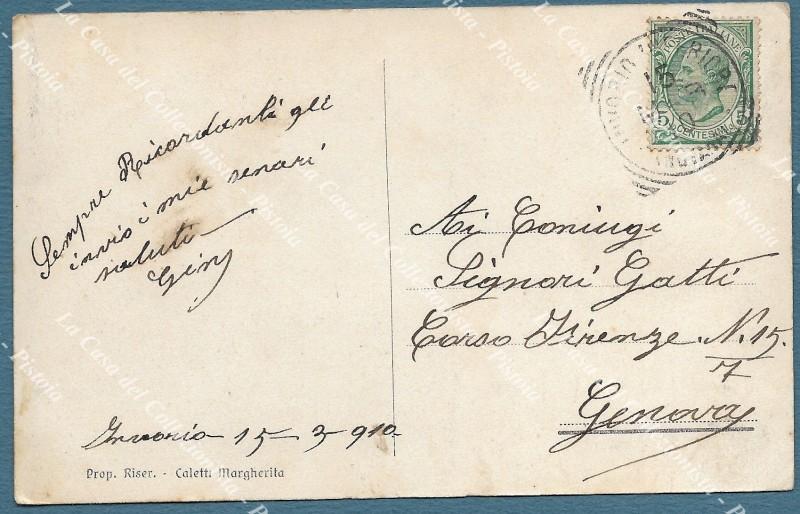 Sempre Ricordanti gli
invio i mie senari
saluti
Gin
Invorio 15-3-910
Prop. Riser. - Caletti Margherita
POSTE ITALIANE
5 CENTESIMI 5
INVORIO INFERIORE
Ai Coniugi
Signori Gatti
Corso Firenze N. 15
7
Genova
La Casa del Collezionista - Pistoia